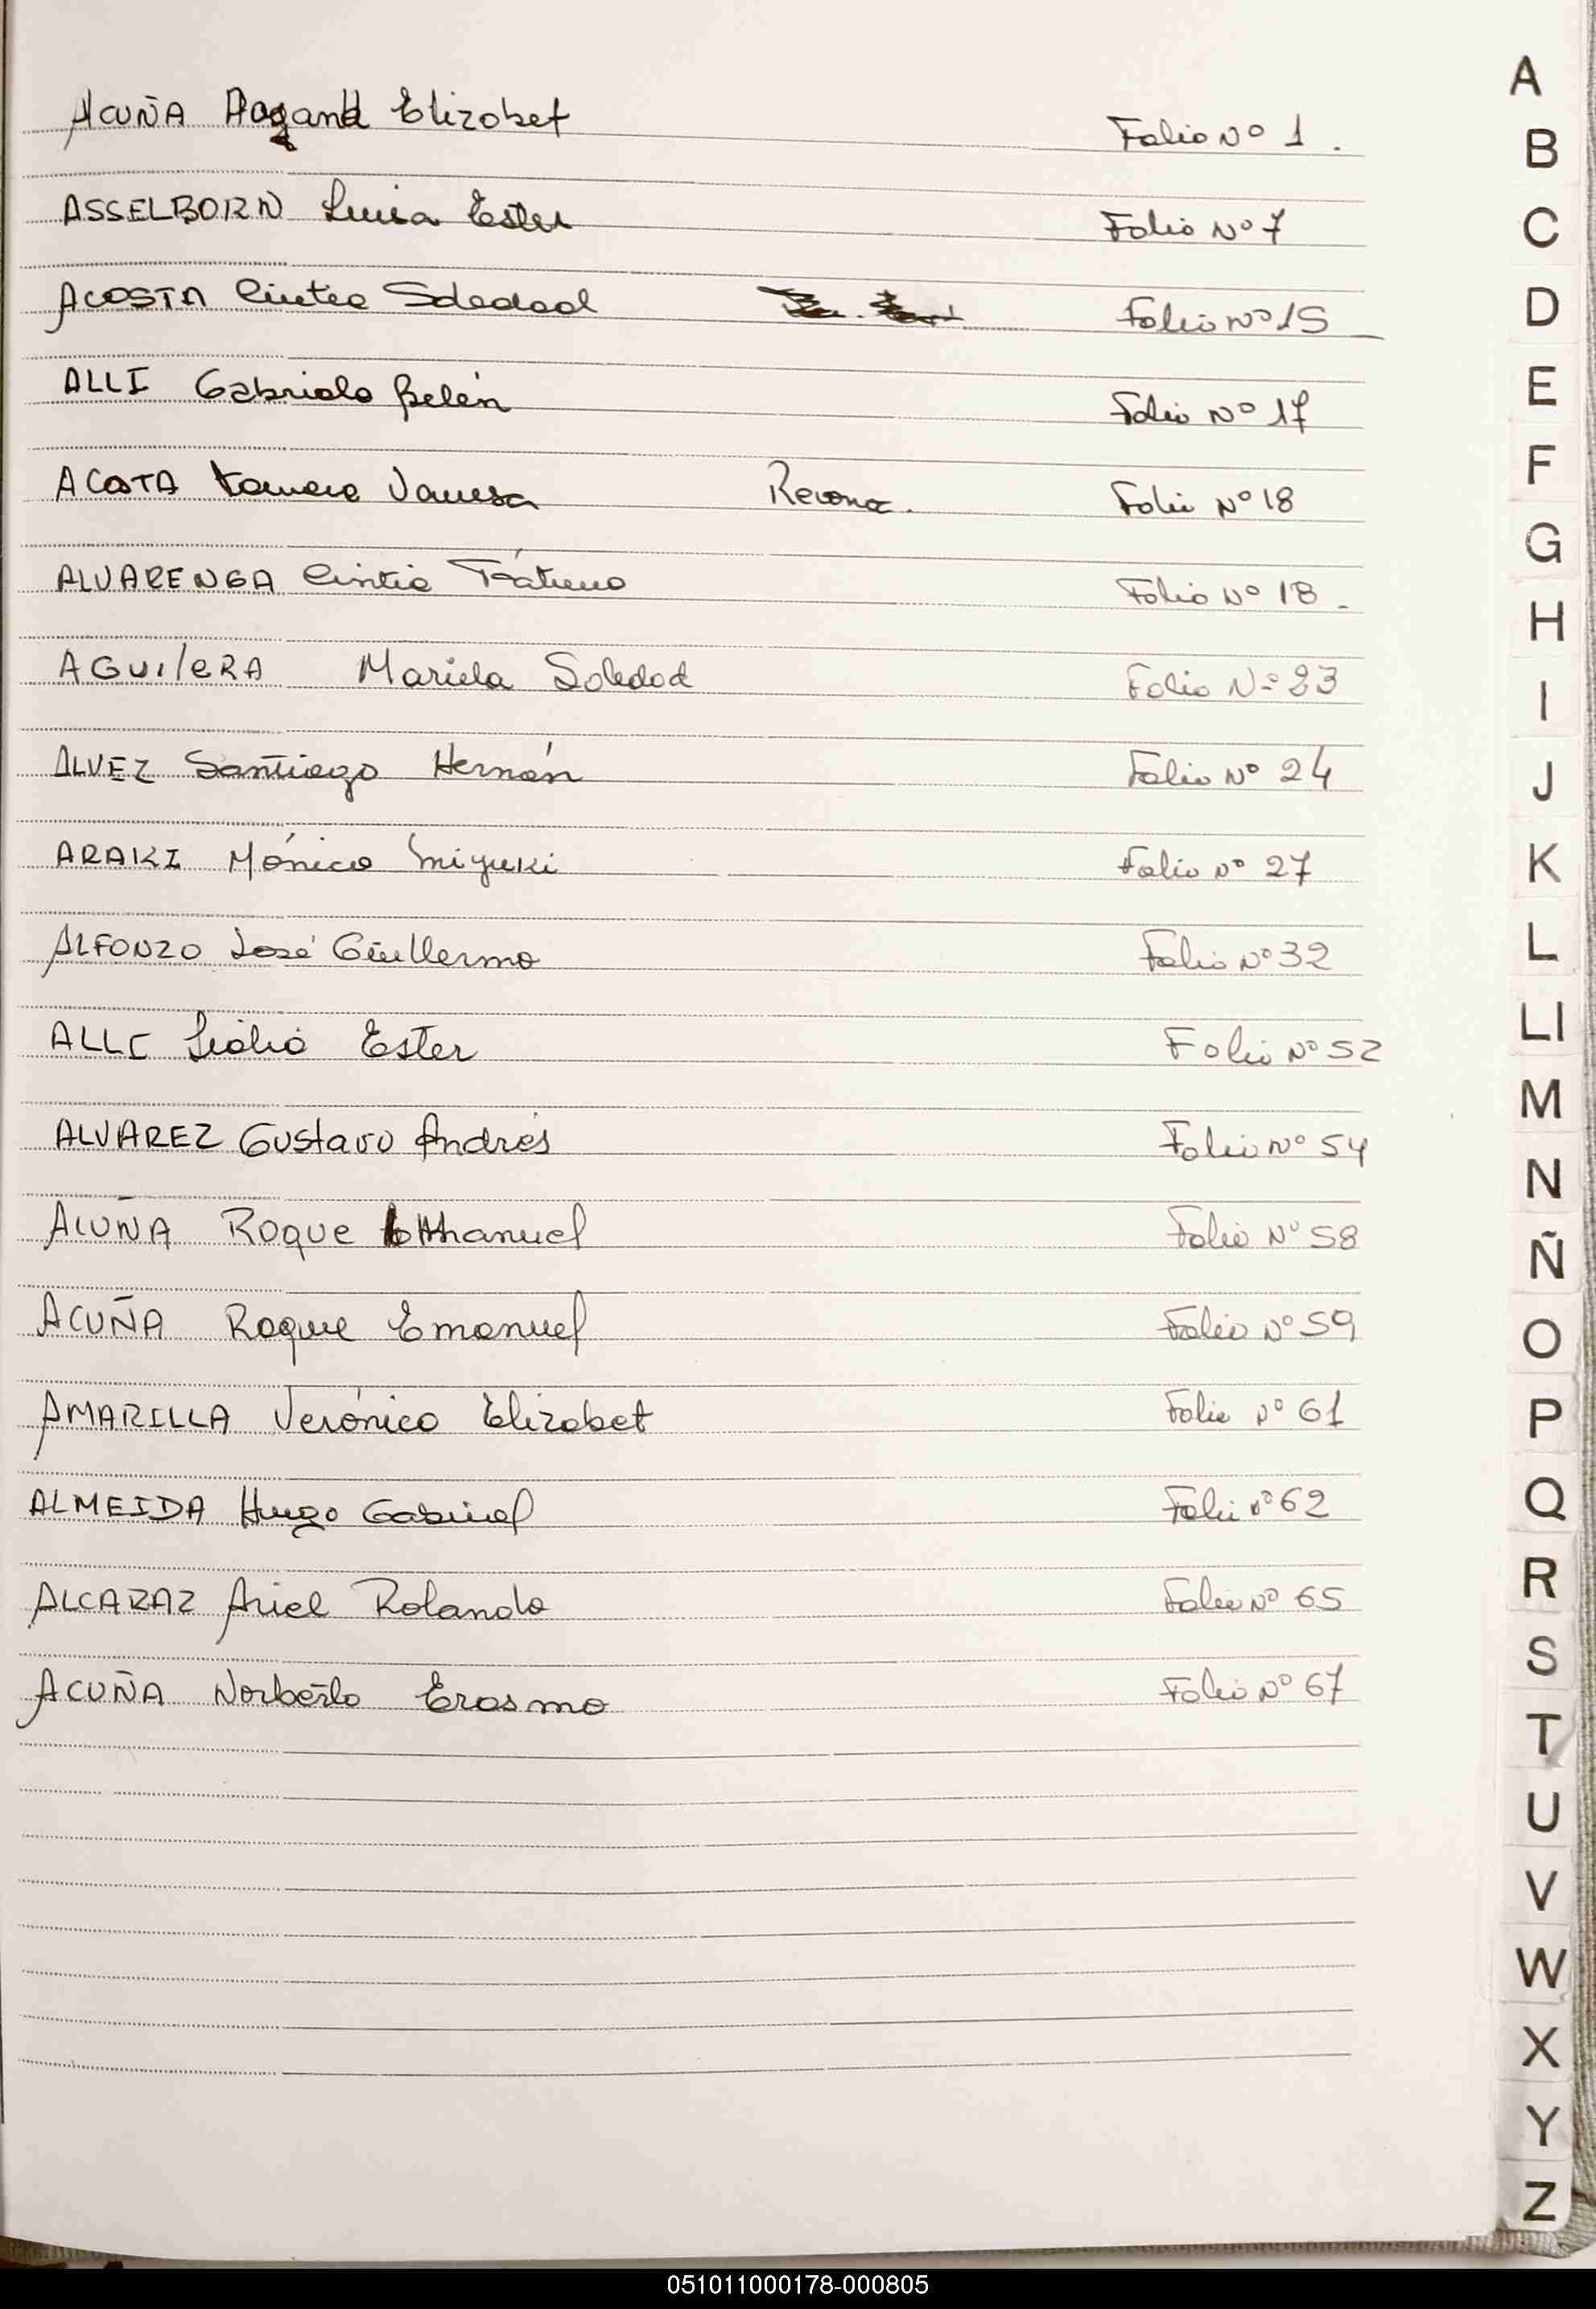 ACUÑA Elizabet Folio Nº 1.
ASSELBORN Luisa Ester Folio Nº 7
ACOSTA Cintia Soledad Folio Nº 15
ALLI Gabriela Belén Folio Nº 17
ACOSTA Tamara Vanesa Reconoc. Folio Nº 18
ALVARENGA Cintia Tatiana Folio Nº 18
AGUILERA Mariela Soledad Folio Nº 23
ALVEZ Santiago Hernán Folio Nº 24
ARAKI Mónica Miyuki Folio Nº 27
ALFONZO José Guillermo Folio Nº 32
ALLI Ester Folio Nº 52
ALVAREZ Gustavo Andrés Folio Nº 54
ACUÑA Roque Folio Nº 58
ACUÑA Roque Emanuel Folio Nº 59
AMARILLA Verónica Elizabet Folio Nº 61
ALMEIDA Hugo Gabriel Folio Nº 62
ALCARAZ Ariel Rolando Folio Nº 65
ACUÑA Norberto Erasmo Folio Nº 67
A
B
C
D
E
F
G
H
I
J
K
L
Ll
M
N
Ñ
O
P
Q
R
S
T
U
V
W
X
Y
Z
051011000178-000805